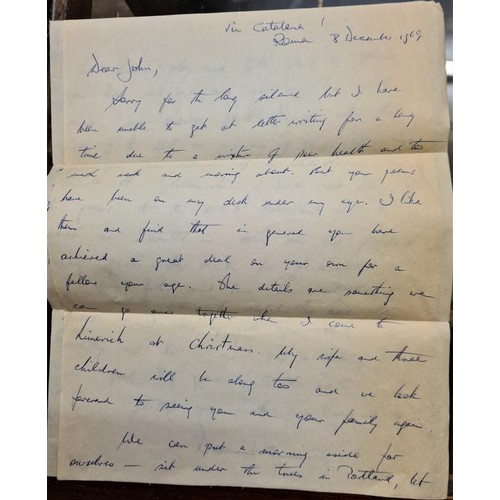 Via Catalana 1
Rome 8 December 1969
Dear John,
Sorry for the long silence but I have
been unable to get at letter writing for a long
time due to a mixture of poor health and too
much work and moving about. But your poems
have been on my desk under my eye. I like
them and find that in general you have
achieved a great deal on your own for a
fellow your age. The details are something we
can go over together when I come to
Limerick at Christmas. My wife and three
children will be along too and we look
forward to seeing you and your family again.
We can put a morning aside for
ourselves — sit under the trees in Portland, let